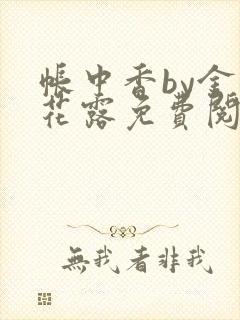 帳中香by金
花露免費閱
無我看非我